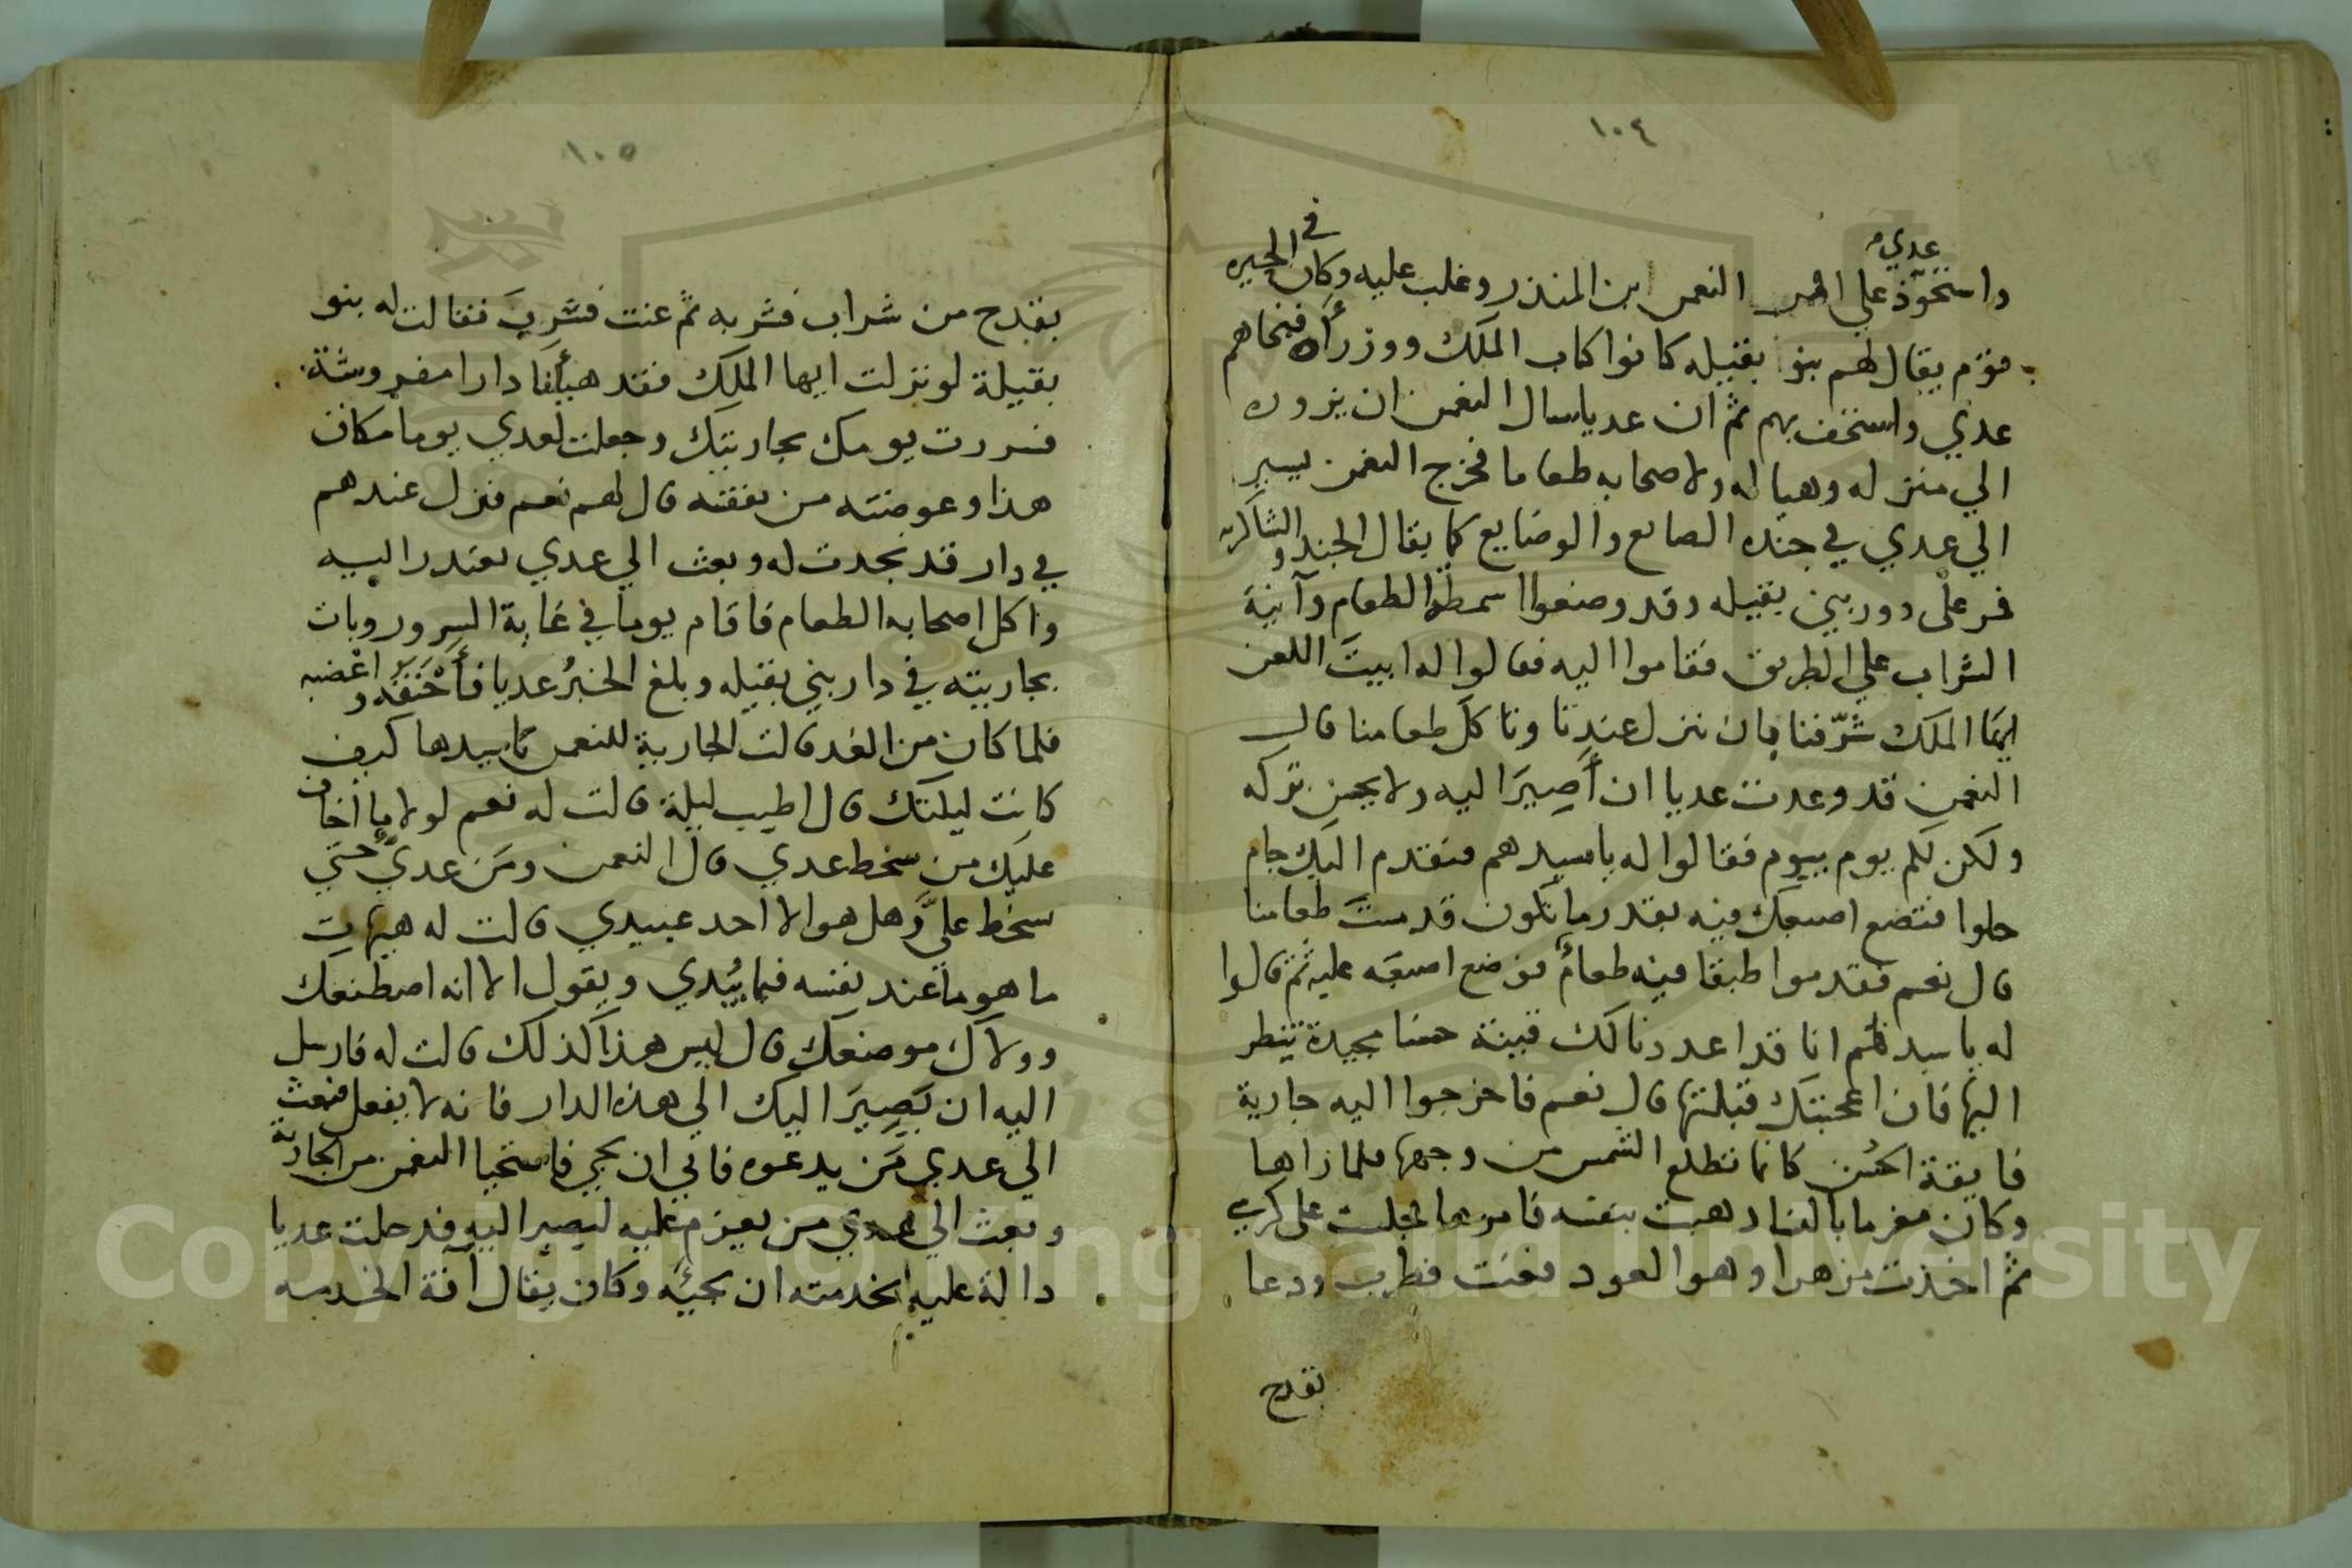 ١٠٤
عدي
واستحوذ علي امر النعمن ابن المنذر وغلب عليه وكان في الحيره
قوم يقال لهم بنو بقيله كانوا كتاب الملك ووزرآه فنحاهم
عدي واستخف بهم ثم ان عديا سال النعمن ان يزوره
الي منزله وهيا له ولاصحابه طعاما فخرج النعمن يسير
الي عدي في جنده الصايع والوضايع كما يقال الجند والشاكريه
فمر علي دور بني بقيله وقد وضعوا اسمطة الطعام وآنية
الشراب علي الطريق فقاموا اليه فقالوا له ابيت اللعن
ايها الملك شرّفنا بان تنزل عندنا وتاكل طعامنا قال
النعمن قد وعدت عديا ان أصير اليه ولا يحسن تركه
ولكن لكم يوم بيوم فقالوا له يا سيدهم فنقدم اليك جام
حلوا فتضع اصبعك فيه بقدر ما تكون قد مست طعامنا
قال نعم فقدموا طبقا فيه طعام فوضع اصبعه عليه ثم قالوا
له يا سيدهم انا قد اعددنا لك قينة حسنا مجيدة تنظر
اليها فان اعجبتك قبلتها قال نعم فاخرجوا اليه جارية
فايقة الحسن كانما تطلع الشمس من وجهها فلما راها
وكان مغرما بالغنا ذهبت بنفسه فامرها فجلست على كرسي
ثم اخذت مزهرا وهو العود فغنت فطرب ودعا
بقدح
١٠٥
بقدح من شراب فشربه ثم غنت فشرب فقالت له بنو
بقيلة لو نزلت ايها الملك فقد هيأنا دارا مفروشة
فسررت يومك بجاريتك وجعلت لعدي يوما مكان
هذا وعوضته من نفقته قال لهم نعم فنزل عندهم
في دار قد نجدت له وبعث الي عدي يعتذر اليه
واكل اصحابه الطعام فاقام يوما في غاية السرور وبات
بجاريته في دار بني بقيله وبلغ الخبر عديا فأحنقه واغضبه
فلما كان من الغد قالت الجارية للنعمن يا سيدها كيف
كانت ليلتك قال اطيب ليلة قالت له نعم لولا ما اخاف
عليك من سخط عدي قال النعمن ومن عدي حتي
سخط عليّ وهل هو الا احد عبيدي قالت له هيهات
ما هو ما عند نفسه فيما يبدي ويقول الا انه اصطنعك
وولاك موضعك قال ليس هذا كذلك قالت له فارسل
اليه ان يصير اليك الي هذه الدار فانه لا يفعل فبعث
الي عدي من يدعوه فابي ان يجي فاستحيا النعمن من الجارية
وبعث الي عدي من يعزم عليه ليصير اليه فدخلت عديا
دالة عليه لخدمته ان يجيئه وكان يقال آفة الخدمه